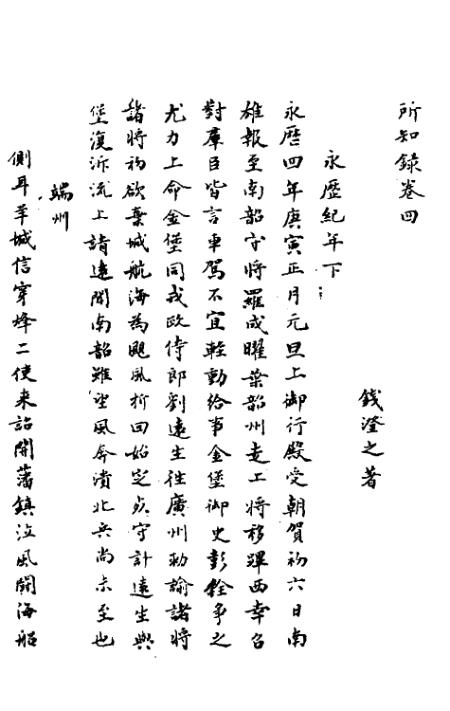 所知錄卷四
錢澄之著
永歷紀年下
永歷四年庚寅正月元旦上御行殿受朝賀初六日南
雄報至南韶守將羅成曜棄韶州走上將移蹕西幸召
對羣臣皆言車駕不宜輕動給事金堡御史彭佺爭之
尤力上命金堡同戎政侍郎劉遠生往廣州勅諭諸將
諸將初欲棄城航海為颶風折回始定死守計遠生與
堡復泝流上請遠聞南韶雖望風奔潰北兵尚未至也
端州
側耳羊城信穿烽二使来詔開藩鎮泣風鬭海船